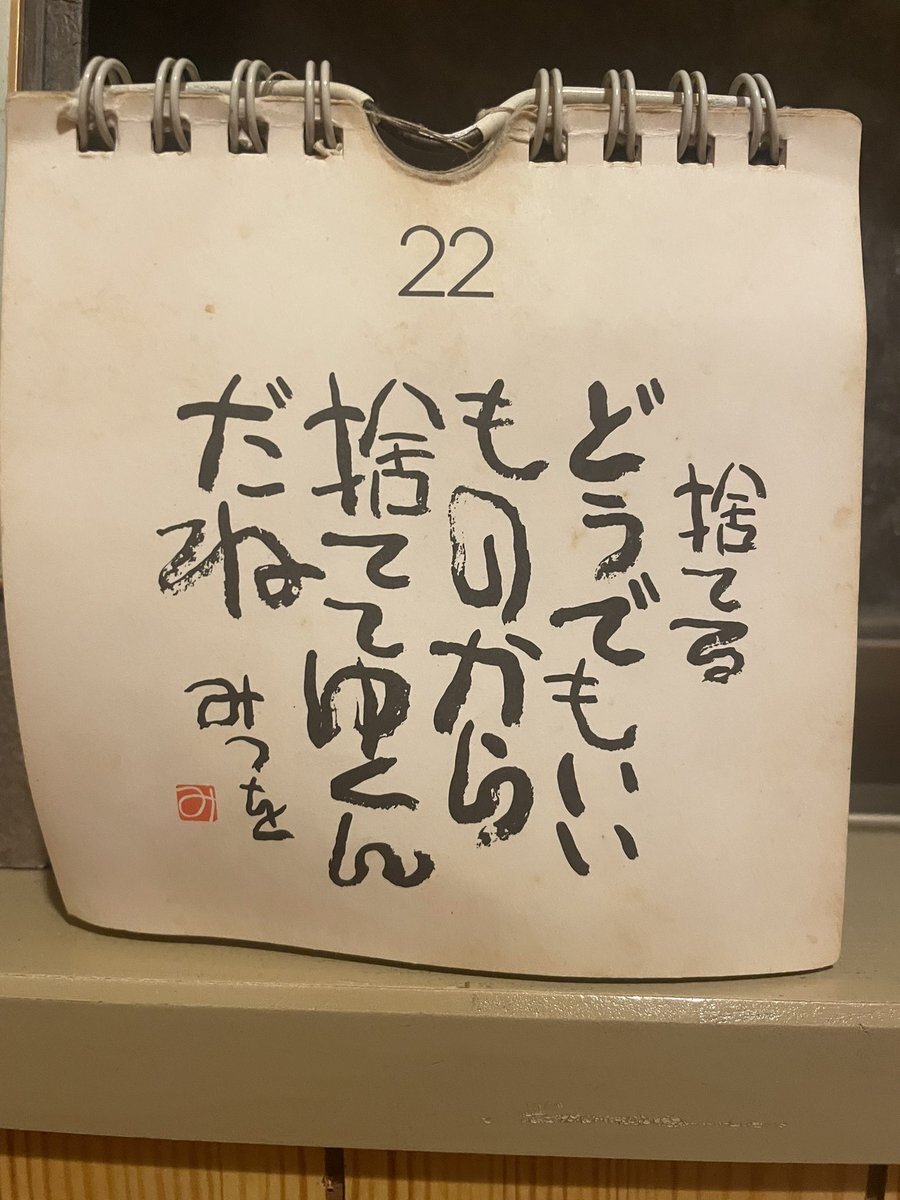 22
捨てる
どうでもいい
ものから
捨ててゆくん
だね
みつを
み